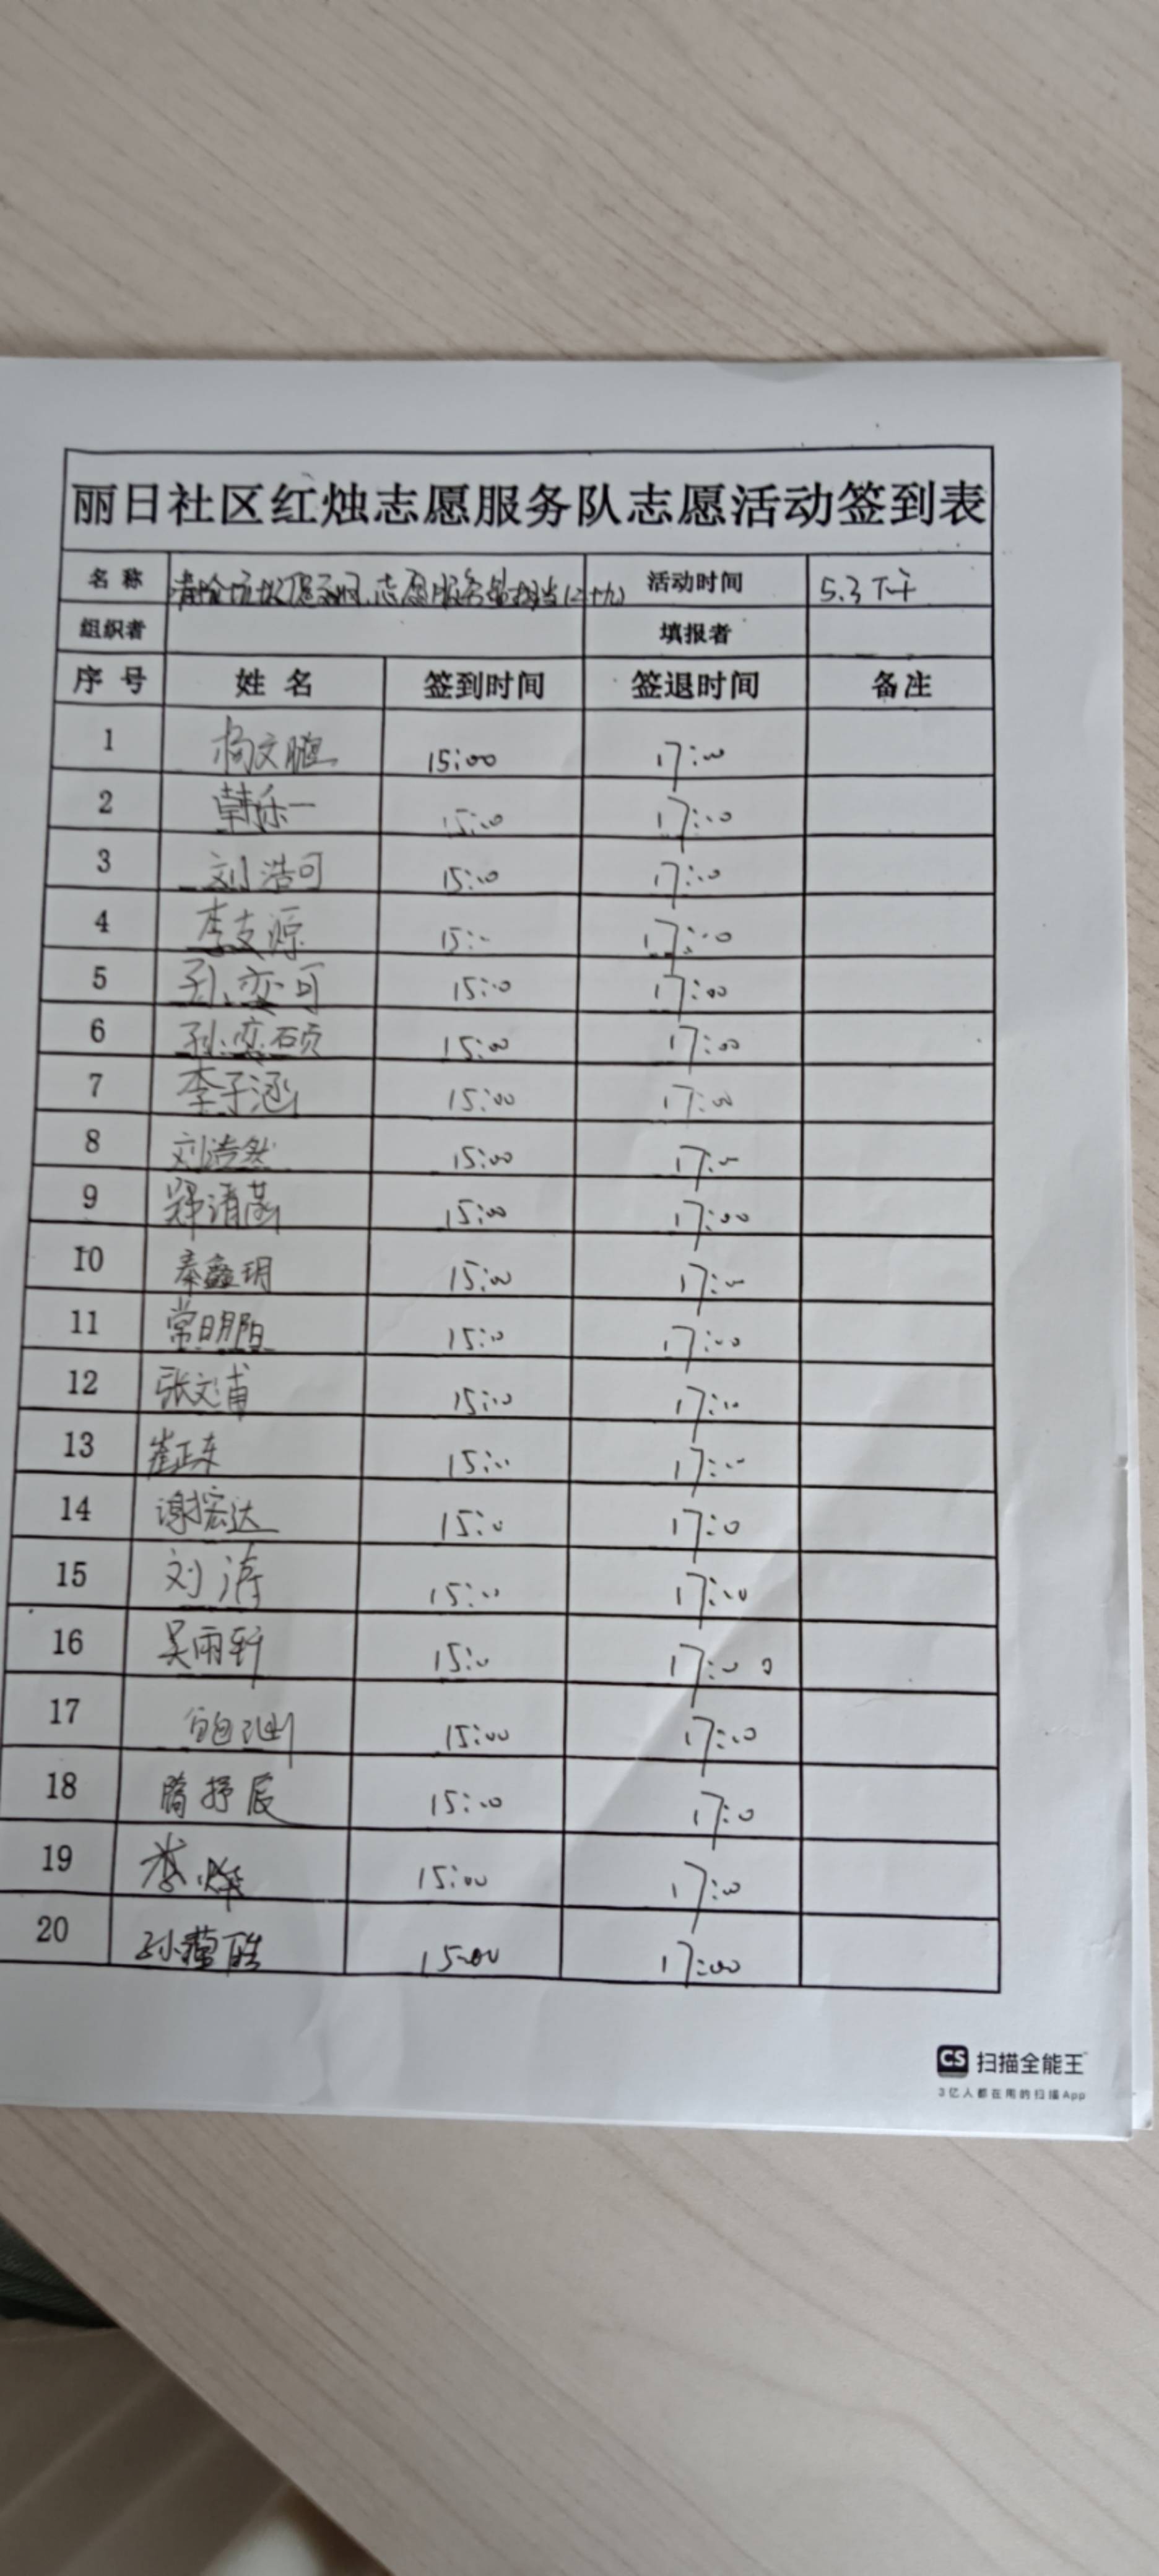 丽日社区红烛志愿服务队志愿活动签到表
名称 清除 志愿服务 担当(二十九) 活动时间 5.3下午
组织者 填报者
序号 姓名 签到时间 签退时间 备注
1 杨文 15:00 17:00
2 韩乐一 15:00 17:00
3 刘浩可 15:00 17:00
4 李支源 15:- 17:00
5 孙奕可 15:00 17:00
6 孙奕硕 15:00 17:00
7 李子涵 15:00 17:00
8 刘浩然 15:00 17:00
9 郑清菡 15:00 17:00
10 秦鑫玥 15:00 17:00
11 常明阳 15:00 17:00
12 张文浦 15:00 17:00
13 崔正东 15:00 17:00
14 谢宏达 15:0 17:0
15 刘涛 15:00 17:00
16 吴雨轩 15:0 17:00
17 15:00 17:00
18 腾抒辰 15:00 17:0
19 李 15:00 17:0
20 孙 15:00 17:00
CS 扫描全能王
3亿人都在用的扫描App